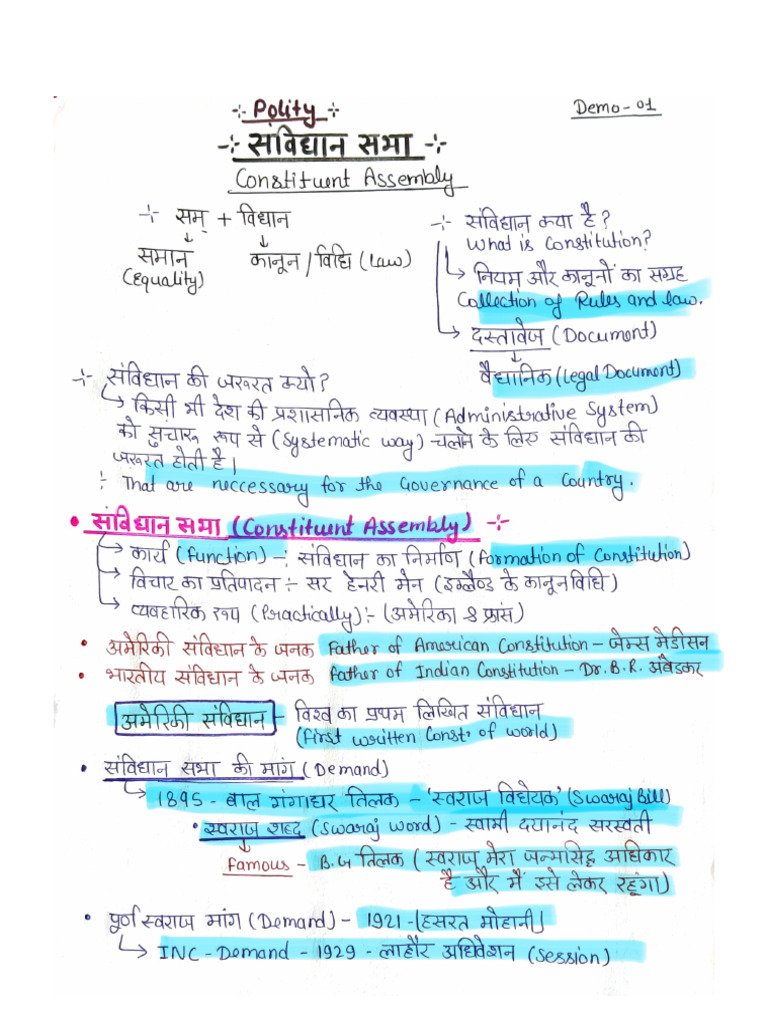 -:- Polity -:-
Demo-01
-:- संविधान सभा -:-
Constituent Assembly
-:- सम् + विधान
समान कानून / विधि (Law)
(Equality)
-:- संविधान क्या है?
What is Constitution?
नियम और कानूनों का सग्रह
Collection of Rules and law.
दस्तावेज (Document)
वैधानिक (Legal Document)
-:- संविधान की जरूरत क्यो?
किसी भी देश की प्रशासनिक व्यवस्था (Administrative System)
को सुचारू रूप से (Systematic way) चलाने के लिए संविधान की
जरूरत होती है।
÷ That are neccessary for the Governance of a Country.
• संविधान सभा (Constituent Assembly) -:-
कार्य (Function) -: संविधान का निर्माण (Formation of Constitution)
विचार का प्रतिपादन ÷ सर हेनरी मेन (इंग्लैण्ड के कानूनविधि)
व्यवहारिक रूप (Practically):- (अमेरिका & फ्रांस)
• अमेरिकी संविधान के जनक Father of American Constitution - जेम्स मेडीसन
• भारतीय संविधान के जनक Father of Indian Constitution - Dr. B.R. अंबेडकर
अमेरिकी संविधान - विश्व का प्रथम लिखित संविधान
(First written Const. of world)
• संविधान सभा की मांग (Demand)
1895 - बाल गंगाधर तिलक - 'स्वराज विधेयक' (Swaraj Bill)
• स्वराज शब्द (Swaraj word) - स्वामी दयानंद सरस्वती
Famous - B.G तिलक (स्वराज मेरा जन्मसिद्ध अधिकार
है और मैं इसे लेकर रहूंगा)
• पूर्ण स्वराज मांग (Demand) - 1921 - (हसरत मोहानी)
INC - Demand - 1929 - लाहौर अधिवेशन (Session)